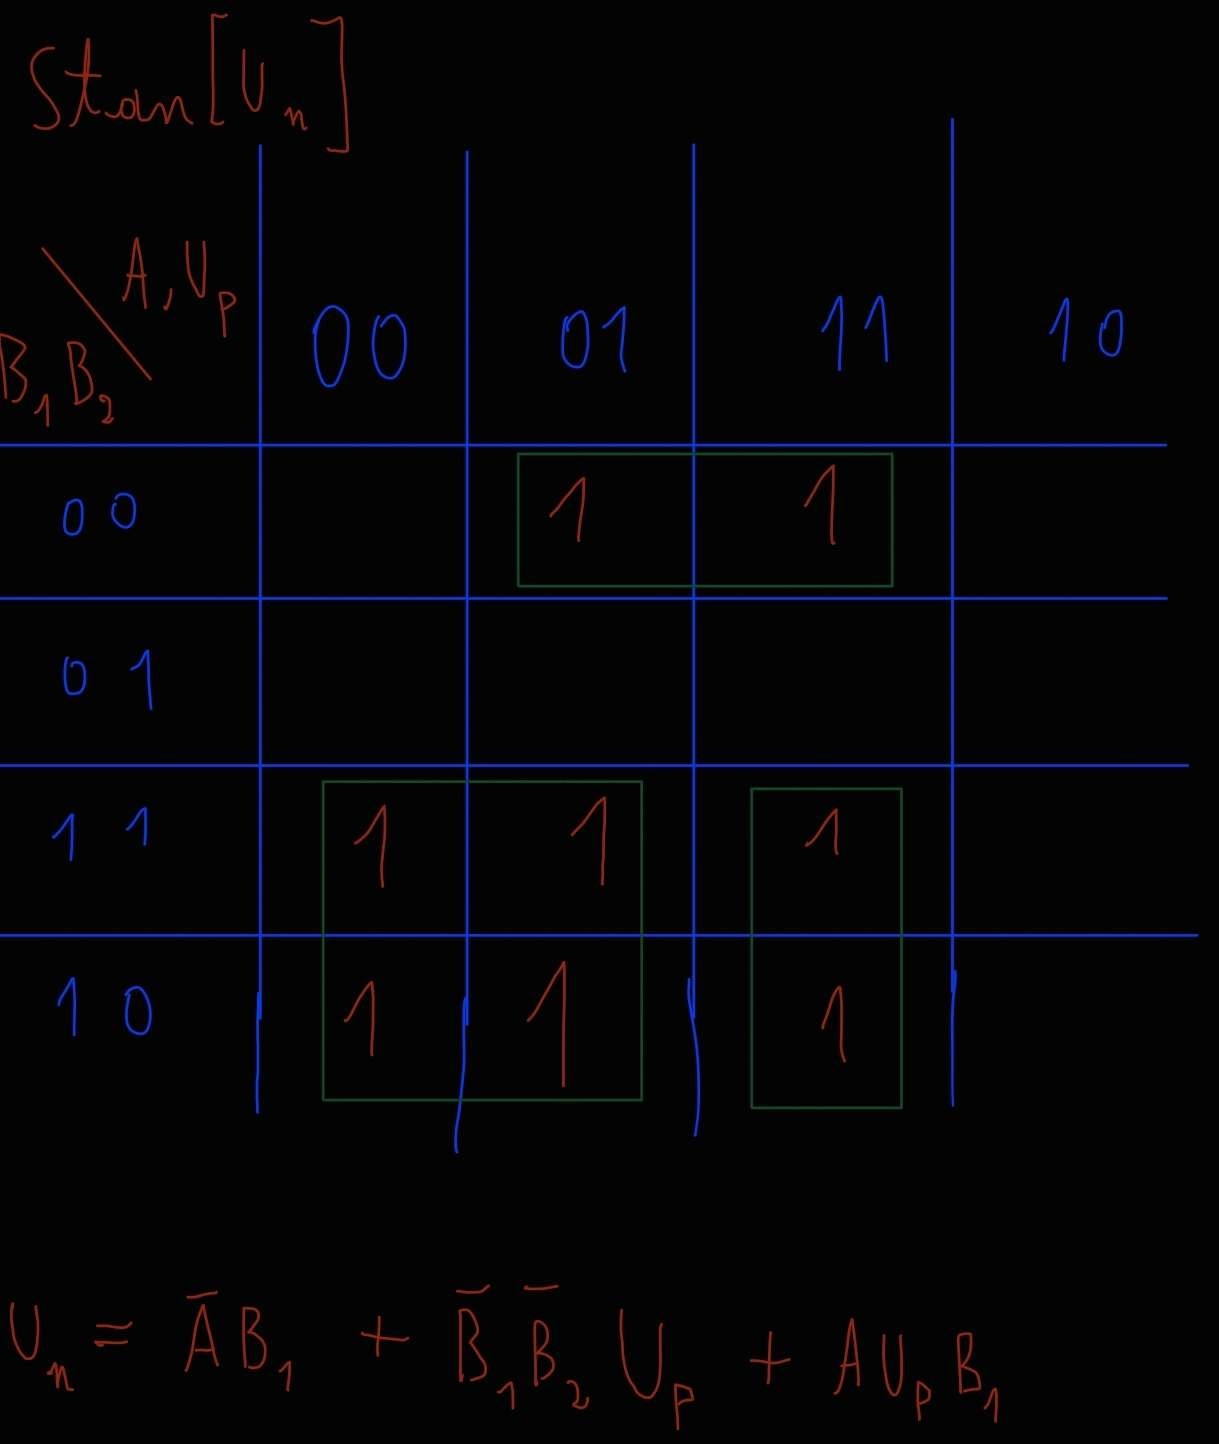 Stan[Un]
A,Up
00 01 11 10
B1B2
00 1 1
01
11 1 1 1
10 1 1 1
Un = A̅B1 + B̅1B̅2Up + AUpB1